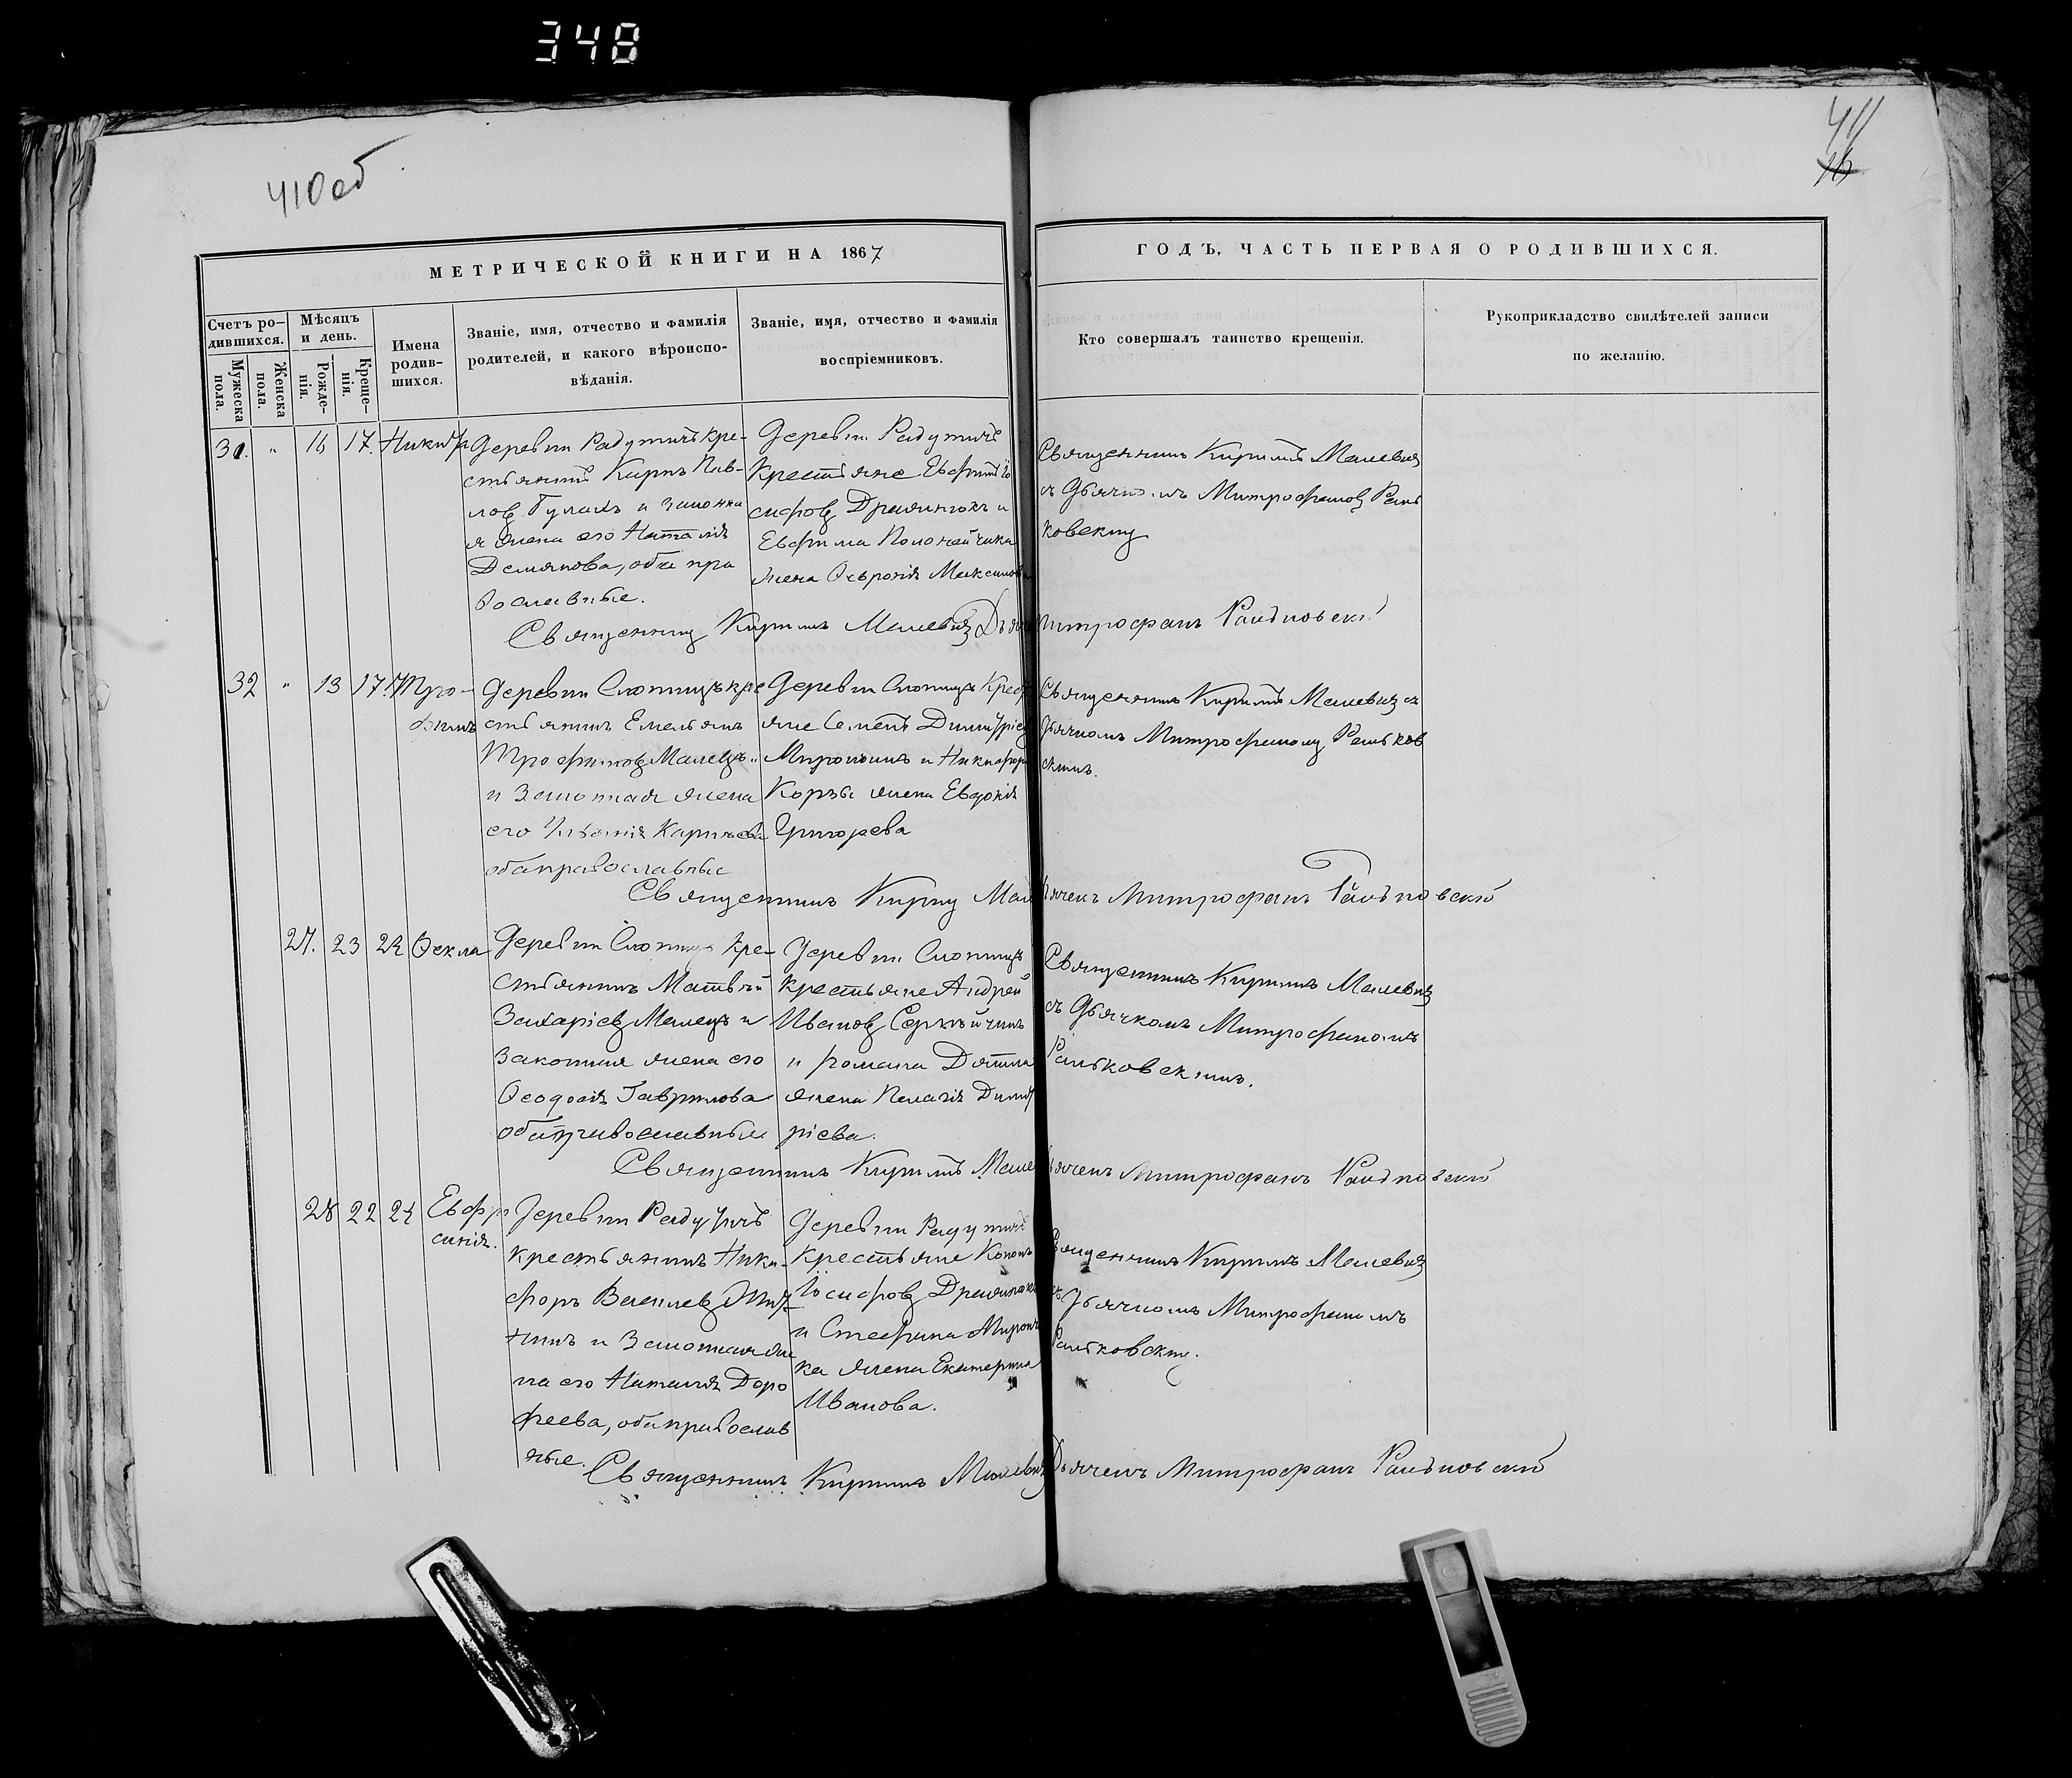 348
410об
41
16
МЕТРИЧЕСКОЙ КНИГИ НА 1867
ГОДЪ, ЧАСТЬ ПЕРВАЯ О РОДИВШИХСЯ.
Счетъ ро-
дившихся.
Мужеска
пола.
Женска
пола.
Мѣсяцъ
и день.
Рожде-
нія.
Креще-
нія.
Имена
родив-
шихся.
Званіе, имя, отчество и фамилія
родителей, и какого вѣроиспо-
вѣданія.
Званіе, имя, отчество и фамилія
воспріемниковъ.
Кто совершалъ таинство крещенія.
Рукоприкладство свидѣтелей записи
по желанію.
31. " 16 17.
Деревни Радутичъ кре-
стьянинъ Карпъ Пав-
ловъ и законна
я жена его Наталія
Демянова, оба пра
вославные.
Деревни Радутичъ
крестьяне Евфимъ Іо
сифовъ и
Евфима
жена Максимова
Священникъ Кирилъ Малевич
съ Дьячкомъ Митрофаномъ Раль
ковскимъ
Священникъ Кирилъ Малевичъ Дьяч Митрофанъ
32 " 13 17 Тро-
фимъ
Деревни кре
стьянинъ Емельянъ
Трофимовъ Малецъ
и законная жена
его
оба православные
Деревни Крест
яне Семенъ Димитріев
Мирончикъ и Никифора
Корзы жена Евдокія
Григорева
Священникъ Кирилъ Малевичъ съ
Дьячкомъ Митрофаномъ Ральков
скимъ.
Священникъ Кирилъ Мал ьячекъ Митрофанъ
27. 23 24 Фекла
Деревни кре-
стьянинъ Матвѣй
Захаріевъ Малецъ и
законная жена его
Феодосія Гаврилова
оба православные
Деревни
крестьяне Андрей
Ивановъ
и романа
жена Пелагія Димит
ріева.
Священникъ Кирилъ Малевичъ
съ Дьячкомъ Митрофаномъ
Ральковскимъ.
Священникъ Кирилъ Мале ьячекъ Митрофанъ
28 22 24 Евфро
синія.
Деревни Радутичъ
крестьянинъ Ники-
форъ Василевъ
и законная же
на его Наталія Доро
феева, оба православ
ные.
Деревни Радутичъ
крестьяне Кононъ
Іосифовъ
и Стефана Мирончи
ка жена Екатерина
Иванова.
Священникъ Кирилъ Малевичъ
съ Дьячкомъ Митрофаномъ
Ральковскимъ.
Священникъ Кирилъ Малевичъ Дьячекъ Митрофанъ